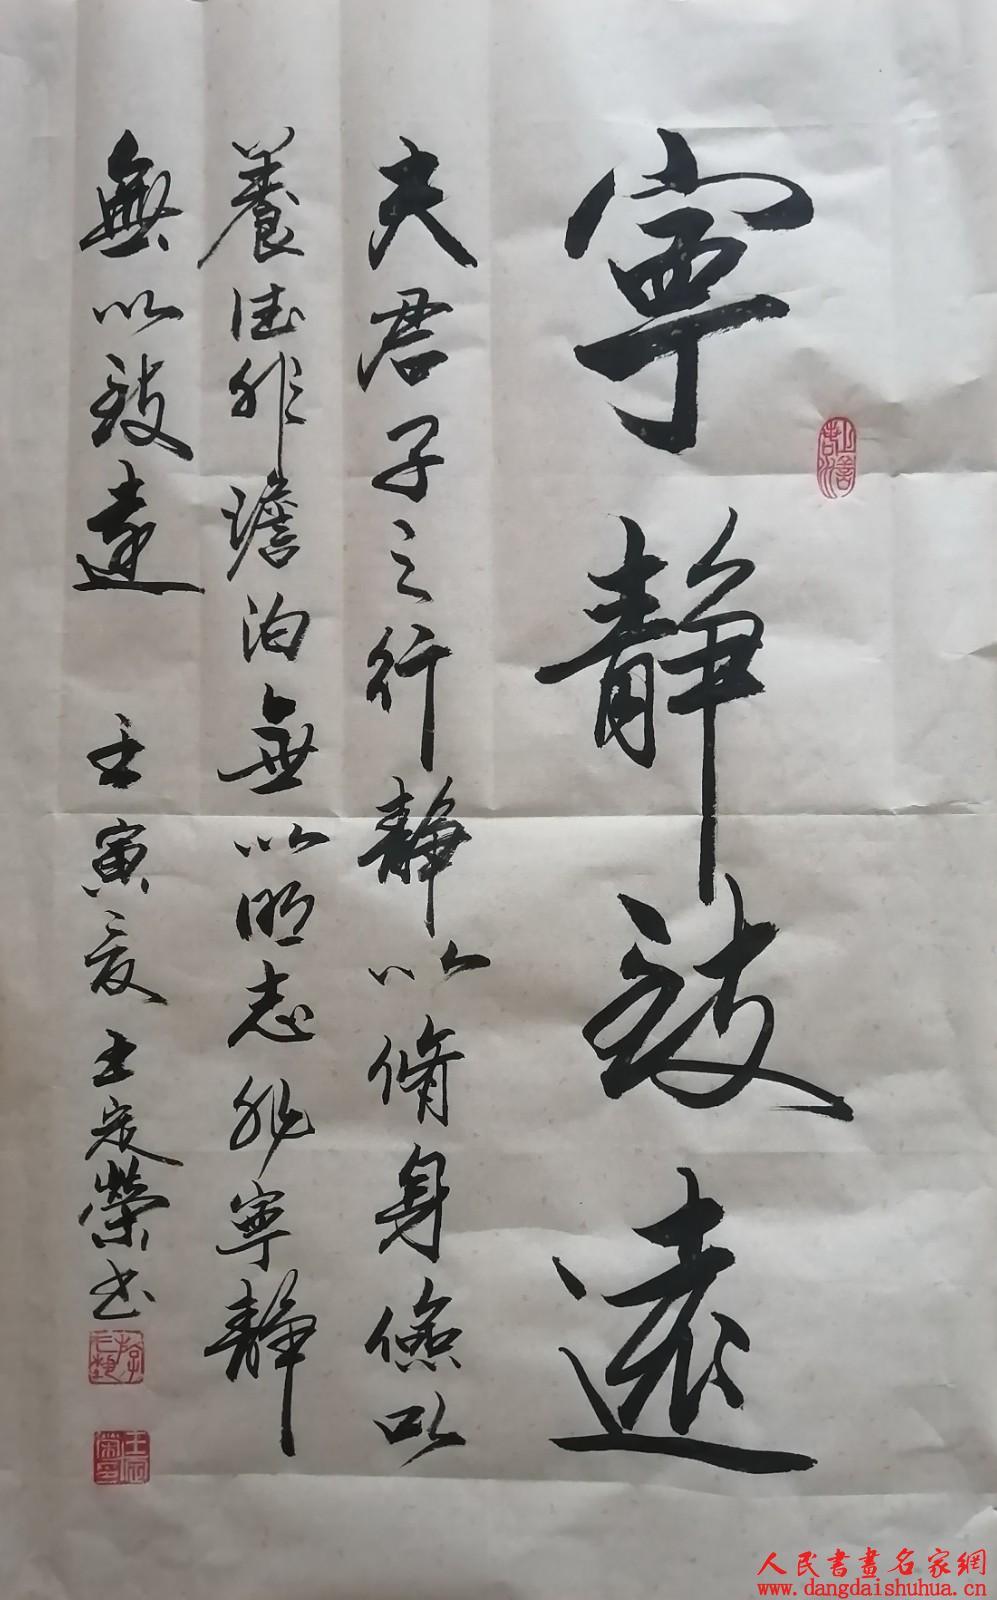 寧靜致遠
夫君子之行靜以脩身儉以
養德非澹泊無以明志非寧靜
無以致遠
壬寅夏王宸榮书
人民書畫名家網
www.dangdaishuhua.cn